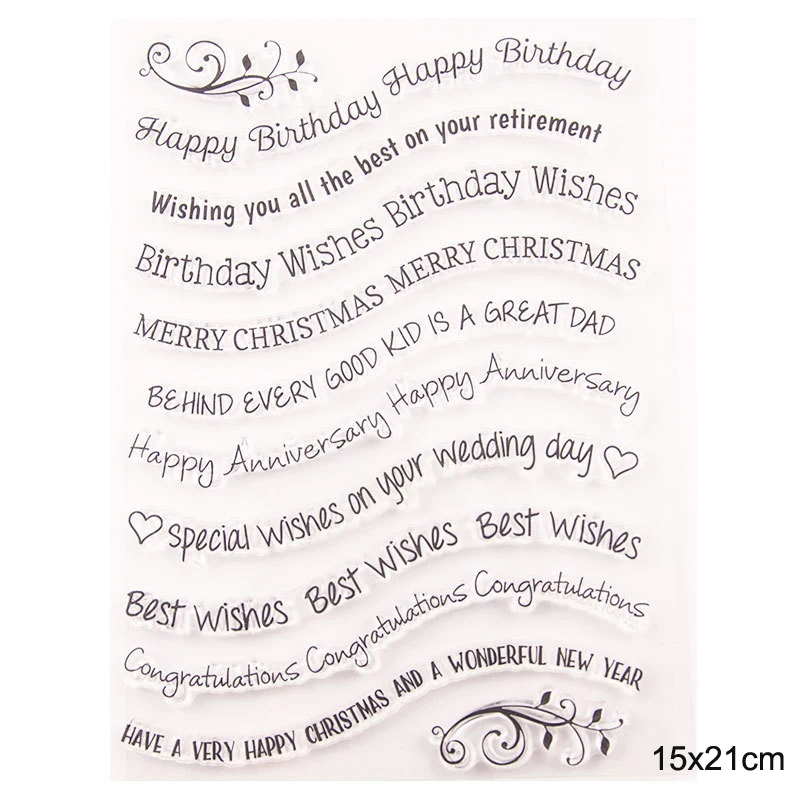 Happy Birthday Happy Birthday
Wishing you all the best on your retirement
Birthday Wishes Birthday Wishes
MERRY CHRISTMAS MERRY CHRISTMAS
BEHIND EVERY GOOD KID IS A GREAT DAD
Happy Anniversary Happy Anniversary
Special Wishes on your wedding day
Best Wishes Best Wishes Best Wishes
Congratulations Congratulations Congratulations
HAVE A VERY HAPPY CHRISTMAS AND A WONDERFUL NEW YEAR
15x21cm